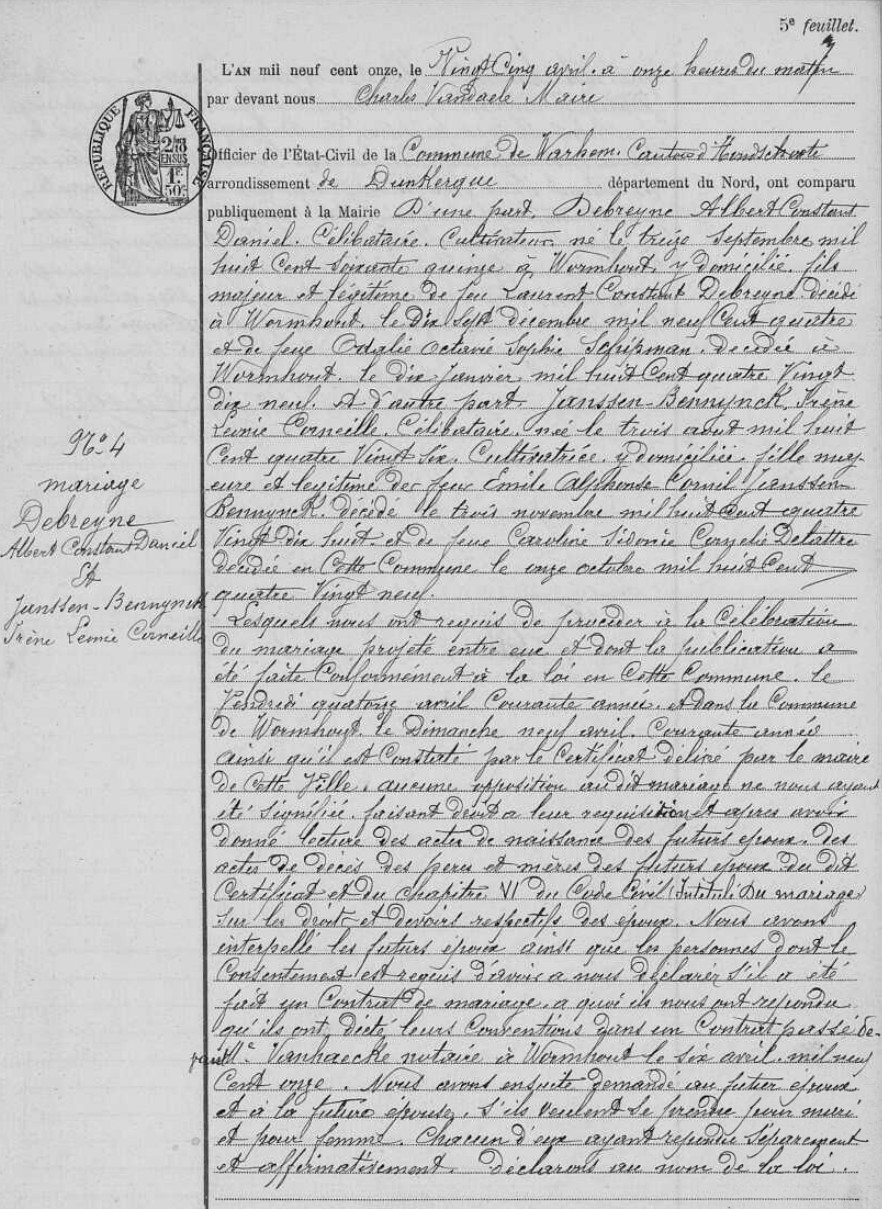 5e feuillet.
7
L'AN mil neuf cent onze, le Vingt Cinq avril à onze heures du matin
par devant nous Charles Vandaele Maire
RÉPUBLIQUE FRANÇAISE
2/10 EN SUS
1F 50c
Officier de l'État-Civil de la Commune de Warhem. Canton d'Hondschoote
arrondissement de Dunkerque département du Nord, ont comparu
publiquement à la Mairie D'une part, Debreyne Albert Constant
Daniel. Célibataire. Cultivateur né le treize septembre mil
huit Cent soixante quinze à Wormhout, y domicilié, fils
majeur et légitime de feu Laurent Constant Debreyne décédé
à Wormhout, le dix sept décembre mil neuf Cent quatre
et de feue Odalie Octavie Sophie Schipman. décédée à
Wormhout. le dix Janvier mil huit Cent quatre Vingt
dix neuf. Et d'autre part Janssen-Bennynck, Irène
Léonie Corneille. Célibataire. née le trois aout mil huit
Cent quatre Vingt six. Cultivatrice. y domiciliée. fille maj-
eure et legitime de feu Emile Alphonse Cornil Janssen-
Bennynck décédé le trois novembre mil huit Cent quatre
Vingt dix huit. et de feue Caroline Sidonie Cornelie Delattre
décédée en Cette Commune le onze octobre mil huit Cent
quatre Vingt neuf.
No 4
mariage
Debreyne
Albert Constant Daniel
Et
Janssen-Bennynck
Irène Leonie Corneille
Lesquels nous ont requis de procéder à la Célébration
du mariage projeté entre eux et dont la publication a
été faite Conformément à la loi en Cette Commune. le
Vendredi quatorze avril Courante année. et dans la Commune
de Wormhout le Dimanche neuf avril. Courante année
ainsi qu'il est Constaté par le Certificat délivré par le maire
de Cette Ville. aucune opposition au dit mariage ne nous ayant
été signifiée. faisant droit a leur requisition et apres avoir
donné lecture des actes de naissance des futurs epoux. des
actes de décès des peres et mères des futurs epoux du dit
Certificat et du chapitre VI du Code Civil Intitulé Du mariage
sur les droit et devoirs respectifs des epoux. Nous avons
interpellé les futurs époux ainsi que les personnes dont le
Consentement est requis d'avoir a nous déclarer s'il a été
fait un Contrat de mariage. a quoi ils nous ont repondu
qu'ils ont dicté leurs Conventions dans un Contrat passé de-
vant Me Vanhaecke notaire à Wormhout le six avril mil neuf
Cent onze. Nous avons ensuite demandé au futur époux
et à la future épouse, s'ils veulent se prendre pour mari
et pour femme. Chacun d'eux ayant repondu séparement
et affirmativement. déclarons au nom de la loi.